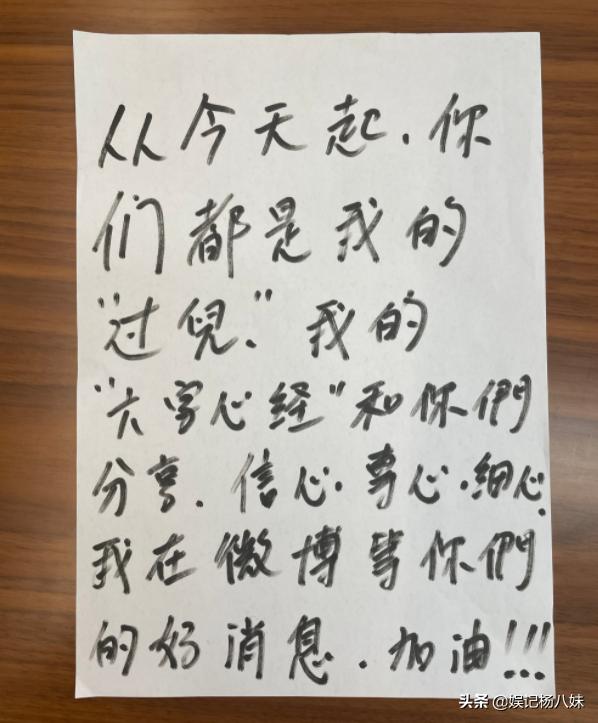 从今天起.你
们都是我的
"过兒."我的
"六字心经"和你們
分享.信心.專心.细心.
我在微博等你們
的好消息.加油!!!
头条 @娱记杨八妹